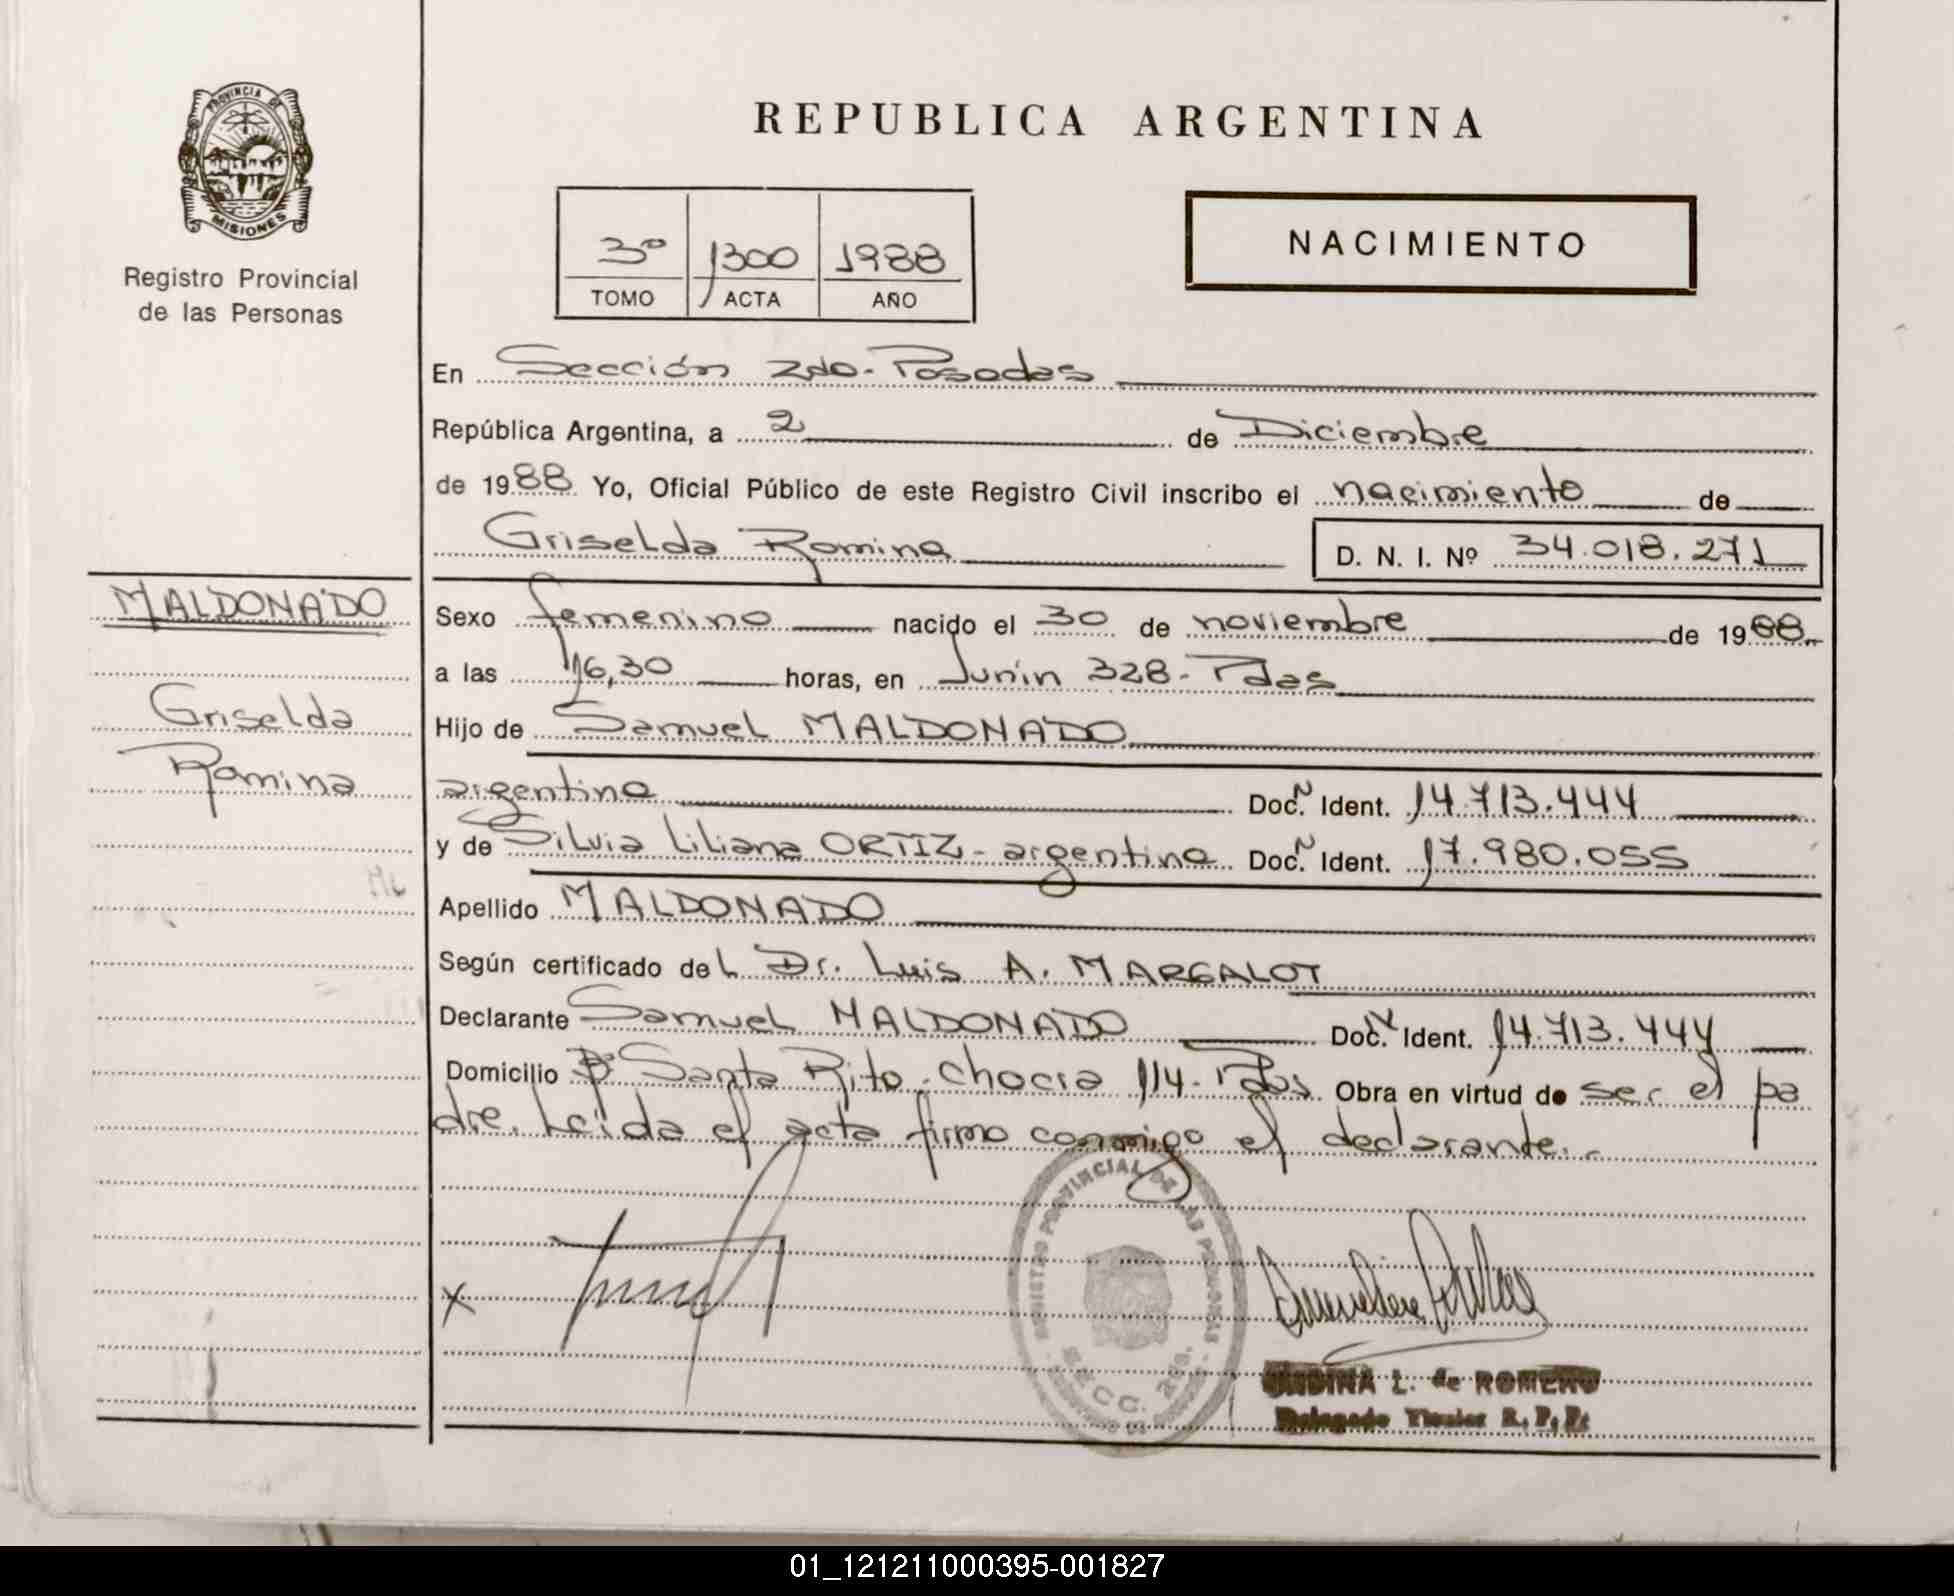 PROVINCIA DE
MISIONES
Registro Provincial
de las Personas
REPUBLICA ARGENTINA
3º 1300 1988
TOMO ACTA AÑO
NACIMIENTO
En Sección 2do. Posadas
República Argentina, a 2 de Diciembre
de 1988 Yo, Oficial Público de este Registro Civil inscribo el nacimiento de
Griselda Romina D. N. I. Nº 34.018.271
MALDONADO
Griselda
Romina
Sexo femenino nacido el 30 de noviembre de 1988
a las 16,30 horas, en Junín 328 - Pdas
Hijo de Samuel MALDONADO
argentino Doc. N Ident. 14.713.444
y de Silvia Liliana ORTIZ - argentina Doc. N Ident. 17.980.055
Apellido MALDONADO
Según certificado del Dr. Luis A. MARGALOT
Declarante Samuel MALDONADO Doc. N Ident. 14.713.444
Domicilio Bº Santa Rita - Chacra 114 - Pdas Obra en virtud de ser el pa
dre. Leída el acta firma conmigo el declarante.-
x
REGISTRO PROVINCIAL DE LAS PERSONAS
SECC. 2da.
L. de ROMERO
Delegado Titular R. P. P.
01_121211000395-001827